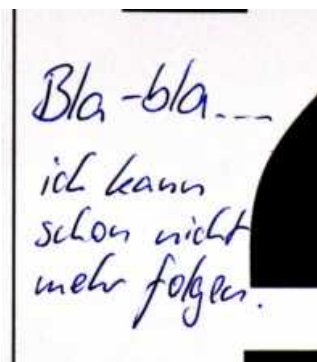 Bla-bla...
ich kann
schon nicht
mehr folgen.